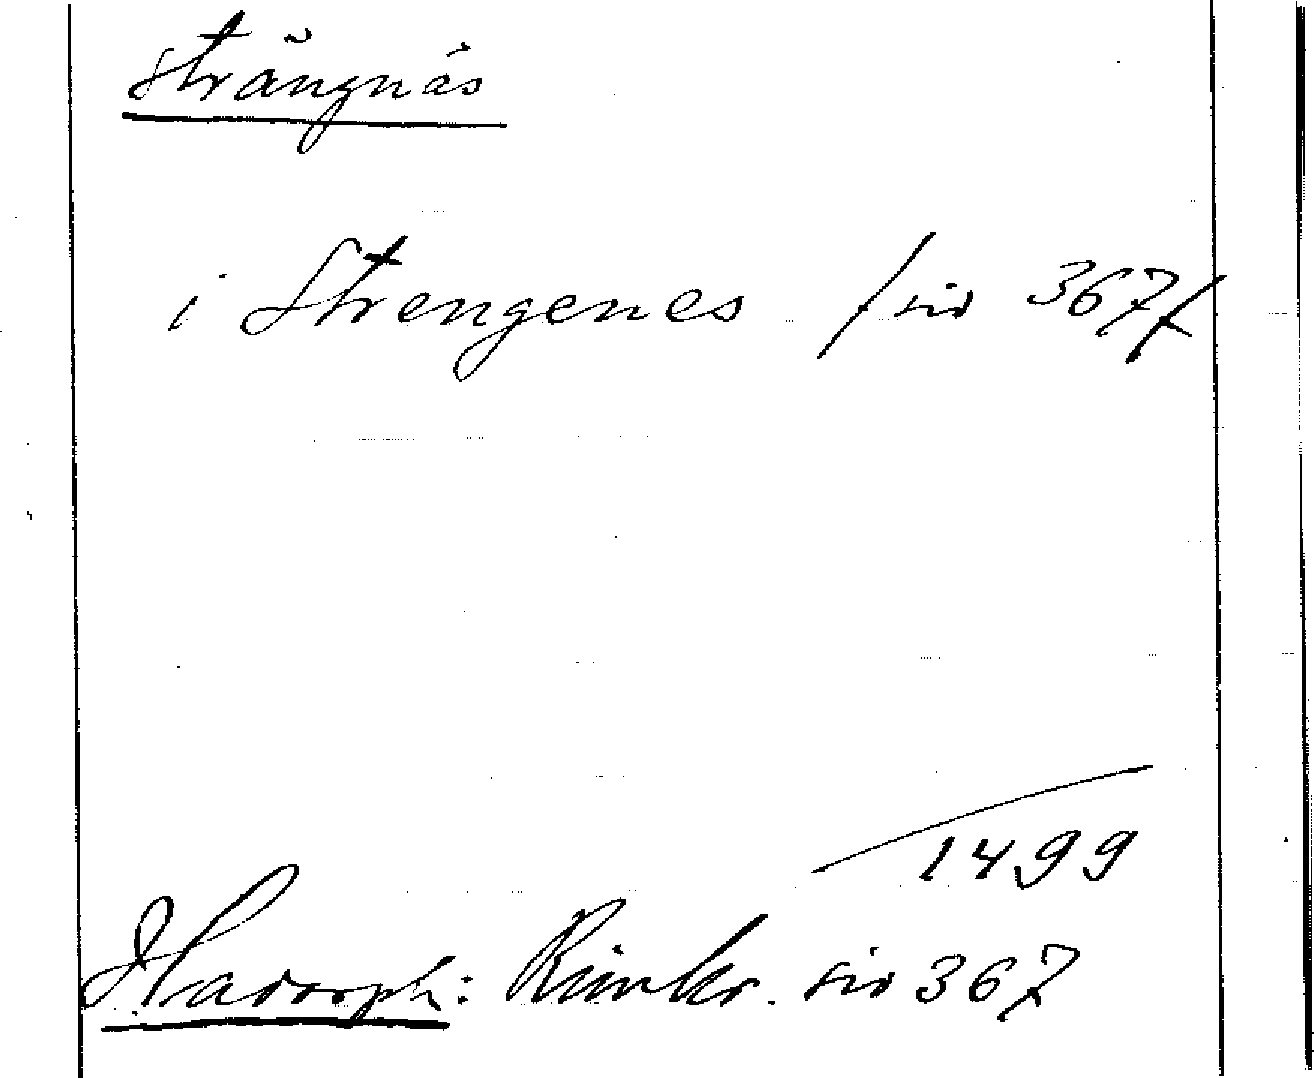 Strängnäs
i Strengenes /sid 367/
1499
Hadorph: Rimkr. sid 367